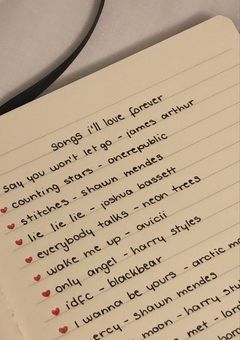 songs i'll love forever
say you won't let go - james arthur
counting stars - onerepublic
stitches - shawn mendes
lie lie lie - joshua bassett
everybody talks - neon trees
wake me up - avicii
only angel - harry styles
idfc - blackbear
I wanna be yours - arctic mo
ercy - shawn mendes
moon - harry sty
met - lor